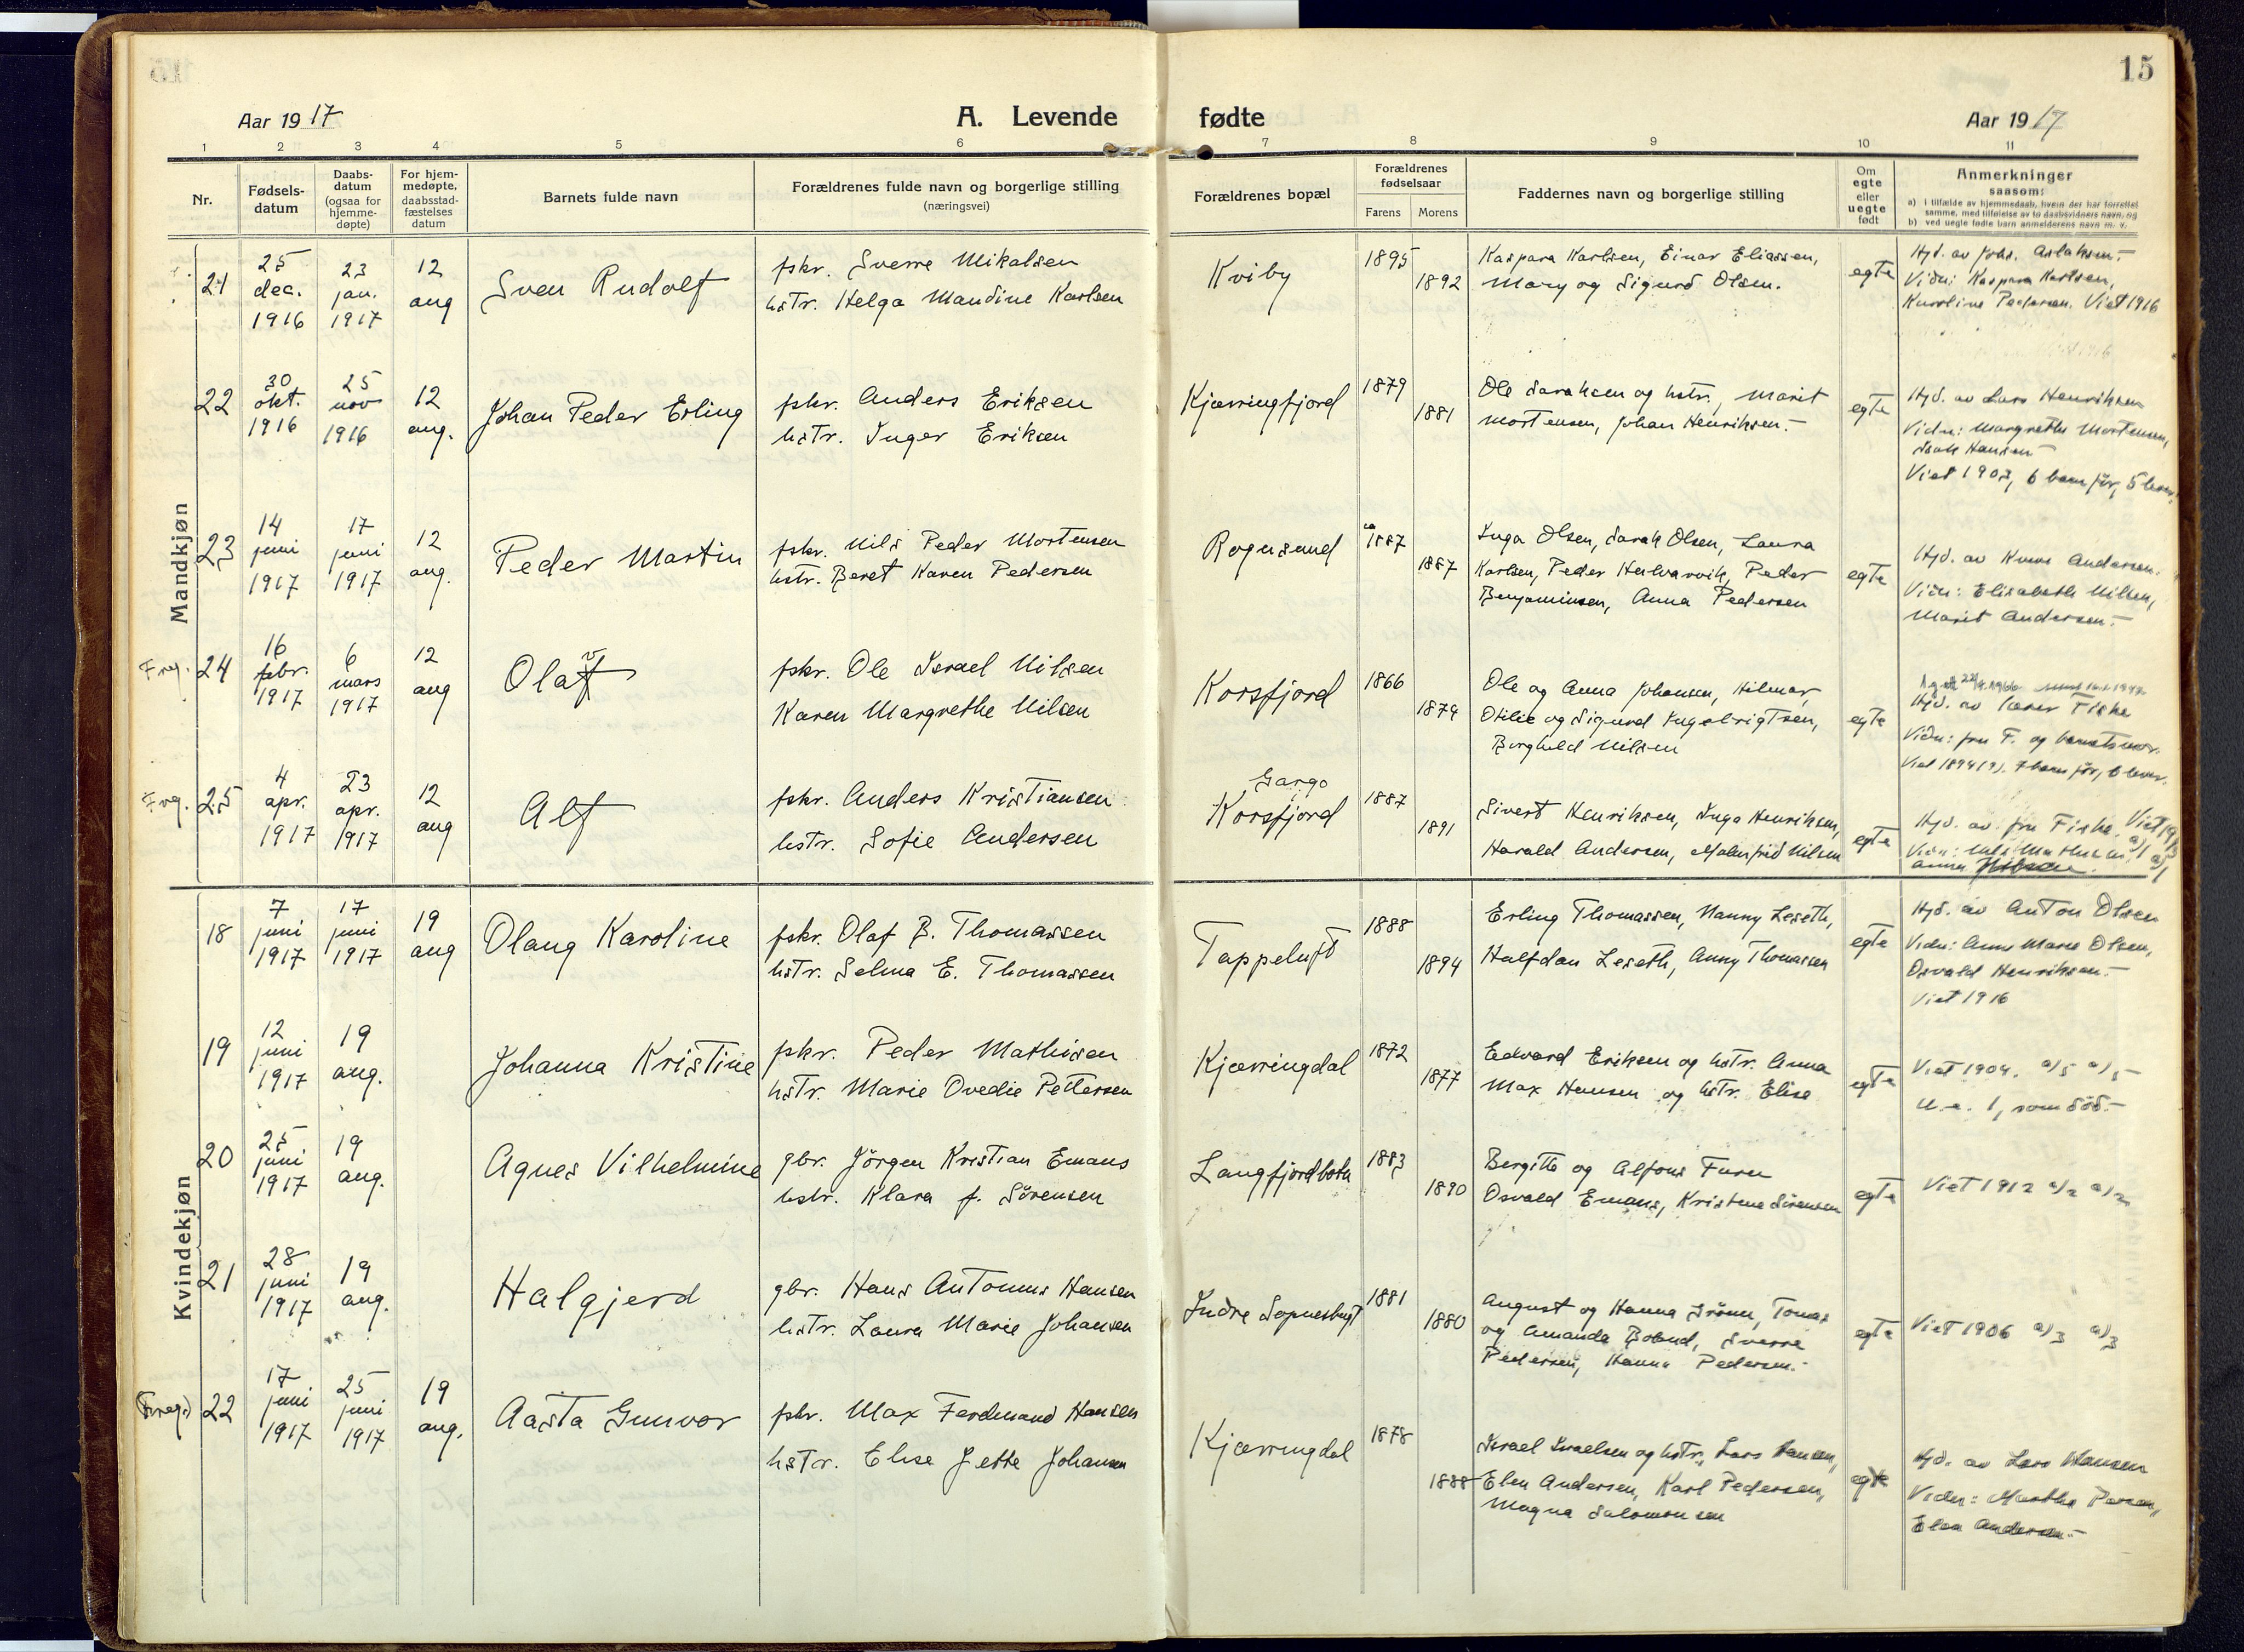 15
Aar 1917
A. Levende fødte
Aar 1917
1 2 3 4 5 6 7 8 9 10 11
Nr.
Fødsels-
datum
Daabs-
datum
(ogsaa for
hjemme-
døpte)
For hjem-
medøpte,
daabsstad-
fæstelses
datum
Barnets fulde navn
Forældrenes fulde navn og borgerlige stilling
(næringsvei)
Forældrenes bopæl
Forældrenes
fødselsaar
Farens Morens
Faddernes navn og borgerlige stilling
Om
egte
eller
uegte
født
Anmerkninger
saasom:
a) i tilfælde av hjemmedaab, hvem der har forrettet
samme, med tilføielse av to daabsvidners navn, og
b) ved uegte fødte barn anmelderens navn m. v.
Mandkjøn
21
25
dec.
1916
23
jan.
1917
12
aug
Sven Rudolf
fskr. Sverre Mikalsen
hstr. Helga Mandine Karlsen
Kviby
1895
1892
Kaspara Karlsen, Einar Eliassen,
Mary og Sigurd Olsen.
egte
Hjd. av Johs. Aslaksen.-
Vidn: Kaspara Karlsen,
Karoline Pedersen. Viet 1916
22
30
okt.
1916
25
nov
1916
12
aug.
Johan Peder Erling
fskr. Anders Eriksen
hstr. Inger Eriksen
Kjærringfjord
1879
1881
Ole Saraksen og hstr., Marit
Mortensen, Johan Henriksen.-
egte
Hjd. av Lars Henriksen
Vidn: Margrethe Mortensen,
Isak Hansen
Viet 1903, 6 barn før, 5 lever.
23
14
juni
1917
17
juni
1917
12
aug.
Peder Martin
fskr. Nils Peder Mortensen
hstr. Beret Karen Pedersen
Rognsund
ca
1887
1887
Inga Olsen, Sarah Olsen, Laura
Karlsen, Peder Halvarvik, Peder
Benjaminsen, Anna Pedersen
egte
Hjd. av Knut Andersen.
Vidn: Elisabeth Nilsen,
Marit Andersen.-
Freg.
24
16
febr.
1917
6
mars
1917
12
aug
Olaf
v
fskr. Ole Israel Nilsen
Karen Margrethe Nilsen
Korsfjord
1866
1874
Ole og Anna Johansen, Hilmar,
Otilie og Sigurd Ingebrigtsen,
Borghild Nilsen
egte
Hjd. av lærer Fiske
Vidn: fru F. og barnets mor.
Viet 1894(?). 7 barn før, 6 lever.
Frg.
25
4
apr.
1917
23
apr.
1917
12
aug
Alf
fskr. Anders Kristiansen
hstr. Sofie Andersen
Gargo
i
Korsfjord
1887
1891
Sivert Henriksen, Inga Henriksen,
Harald Andersen, Malmfrid Nilsen
egte
Hjd. av fru Fiske. Viet 1913
a)1 a)1
Kvindekjøn
18
7
juni
1917
17
juni
1917
19
aug
Olaug Karoline
fskr. Olaf B. Thomassen
hstr. Selma E. Thomassen
Tappeluft
1888
1894
Erling Thomassen, Nanny Leseth,
Halfdan Leseth, Anny Thomassen
egte
Hjd. av Anton Olsen
Vidn: Anne Marie Olsen,
Osvald Henriksen.-
Viet 1916
19
12
juni
1917
19
aug.
Johanna Kristine
fskr. Peder Mathisen
hstr. Marie Ovedie Pettersen
Kjærringdal
1872
1877
Edvard Eriksen og hstr. Anna
Max Hansen og hstr. Elise
egte
Viet 1904. a)5 a)5
u.a. 1, som död.-
20
25
juni
1917
19
aug.
Agnes Vilhelmine
gbr. Jörgen Kristian Emaus
hstr. Klara f. Sörensen
Langfjordbotn
1883
1890
Bergitte og Alfons Furu
Osvald Emaus, Kristine Sörensen
egte
Viet 1912 a)2 a)2
21
28
juni
1917
19
aug.
Halgjerd
gbr. Hans Antonius Hansen
hstr. Laura Marie Johansen
Indre Sopnesbugt
1881
1880
August og Hanna Grönn, Tomas
og Amanda Bolund, Sverre
Pedersen, Hanna Pedersen.-
egte
Viet 1906 a)3 a)3
(Freg.)
22
17
juni
1917
25
juni
1917
19
aug.
Aasta Gunvor
fskr. Max Ferdinand Hansen
hstr. Elise Jette Johansen
Kjærringdal
1878
1888
Israel Israelsen og hstr., Lars Hansen,
Elen Andersen, Karl Pedersen,
Magna Salomonsen
egte
Hjd. av Lars Hansen
Vidn: Martha
Elen Andersen.-